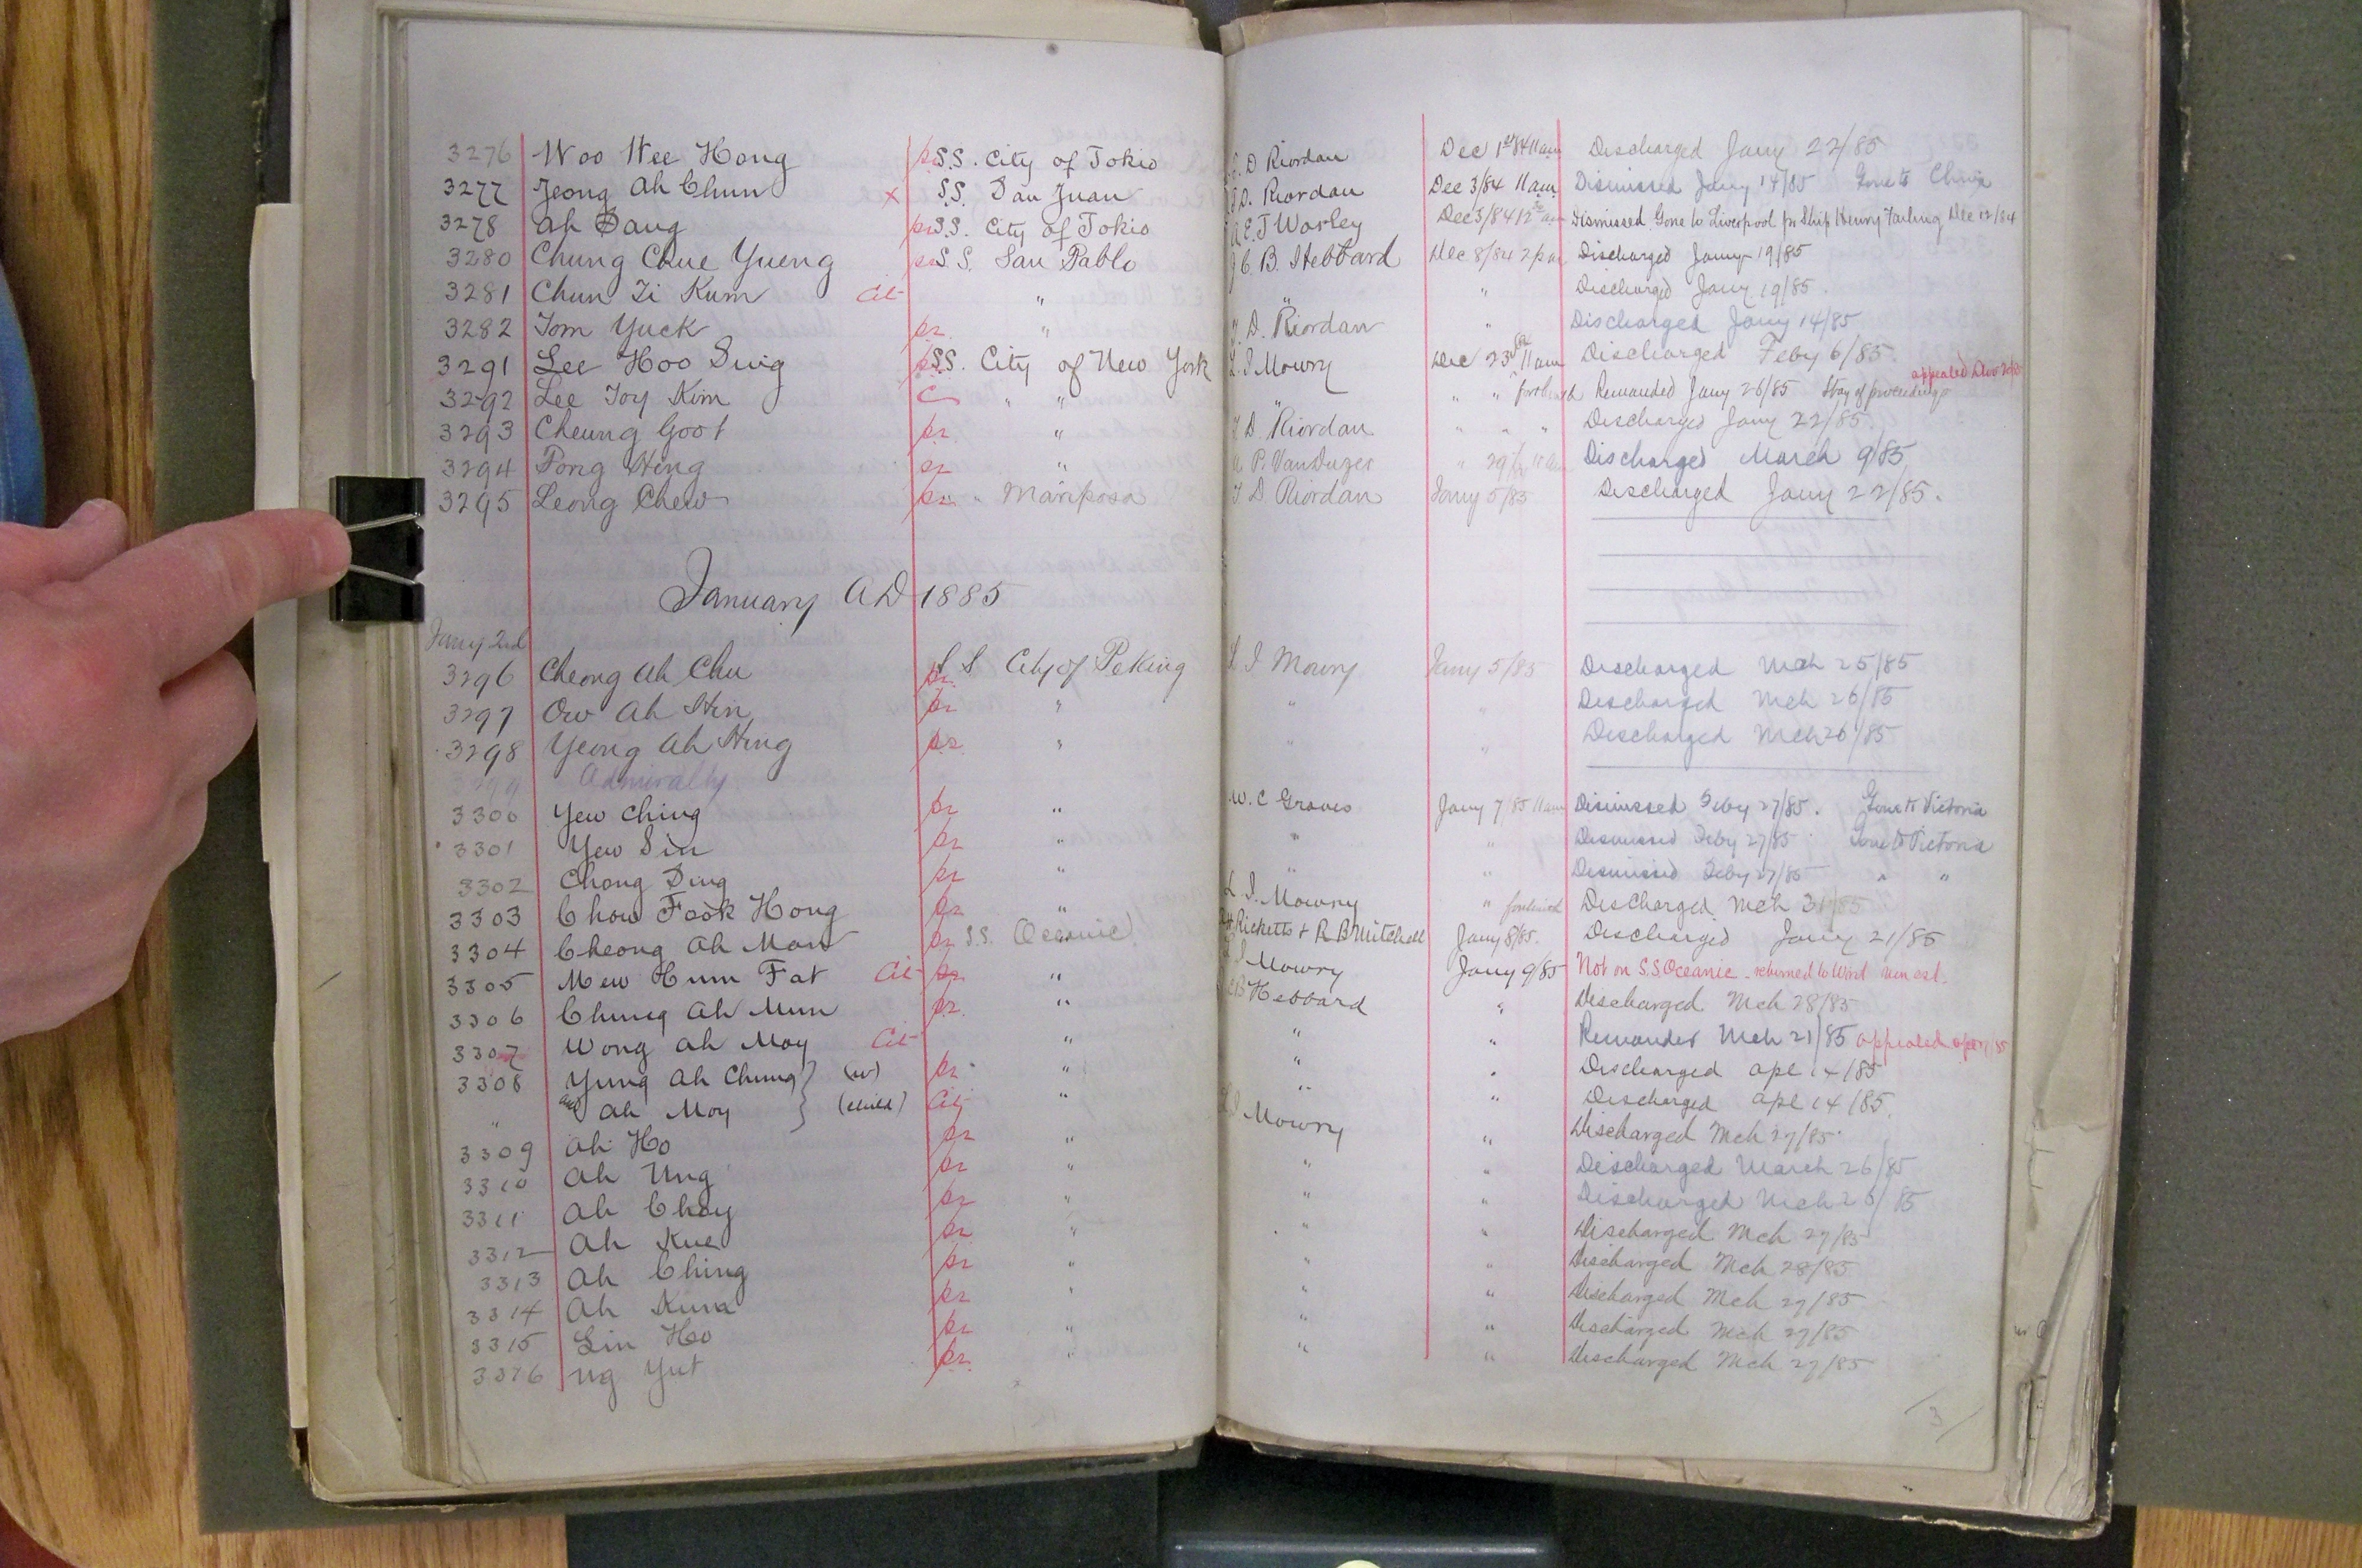 3276 Woo Wee Hong pr S.S. City of Tokio T. D Riordan Dec 1st 84 11am Discharged Jany 22/85
3277 Jeong Ah Chun x S.S. San Juan T.D. Riordan Dec 3/84 11am Dismissed Jany 14/85 Gone to China
3278 Ah Dang pr S.S. City of Tokio A.E.T Worley Dec 3/84 12 Dismissed Gone to Liverpool pr Ship Henry Dec 12/84
3280 Chung Chue Yueng pr S.S. San Pablo C. B. Hebbard Dec 8/84 2pm Discharged Jany 19/85
3281 Chun Ti Kum Cit " " " Discharged Jany 19/85.
3282 Tom Yuck pr " T. D. Riordan " Discharged Jany 14/85
3291 Lee Hoo Sing pr S.S. City of New York L. I Mowry Dec 23 11am Discharged Feby 6/85.
3292 Lee Toy Kim C " " " " " forthwith Remanded Jany 26/85 Stay of proceedings appealed
3293 Cheung Goot pr. " T D. Riordan " " " Discharged Jany 22/85.
3294 Fong Hing pr " P. VanDuzer " 29 Discharged March 9/85
3295 Leong Chew pr " " Mariposa T D Riordan Jany 5/85 Discharged Jany 22/85.
January AD 1885
Jany 2nd
3296 Cheong Ah Chu pr. S S City of Peking L I Mowry Jany 5/85 Discharged Mch 25/85
3297 Ow Ah Hin pr " " " Discharged Mch 26/85
3298 Yeong Ah Hing pr. " " " Discharged Mch 26/85
3299 Admiralty
3300 Yew Ching pr " W. C Graves Jany 7/85 11am Dismissed Feby 27/85. Gone to Victoria
3301 Yew Sin pr " " " Dismissed Feby 27/85 Gone to Victoria
3302 Chong Ding pr " " " Dismissed Feby 27/85 " "
3303 Chow Fook Hong pr " L. I. Mowry " forthwith Discharged Mch 31/85
3304 Cheong Ah Mon pr S.S. Oceanic Ricketts & R B Mitchell Jany 8/85. Discharged Jany 21/85
3305 Mew Hum Fat Cit pr " L I Mowry Jany 9/85 Not on S.S. Oceanic - returned to Writ non est.
3306 Chung Ah Mun pr. " CB Hebbard " Discharged Mch 28/85
3307 Wong Ah Moy Cit " " " Remanded Mch 21/85 appealed
3308 Yung Ah Chung } (w) pr " " " Discharged Apl 14/85
" and Ah Moy } (child) Cit " " " Discharged Apl 14/85.
3309 Ah Ho pr " L I Mowry " Discharged Mch 27/85
3310 Ah Ung pr " " " Discharged March 26/85
3311 Ah Choy pr " " " Discharged Mch 26/85
3312 Ah Kue pr " " " Discharged Mch 27/85
3313 Ah Ching pr " " " Discharged Mch 28/85
3314 Ah Kum pr " " " Discharged Mch 27/85
3315 Lin Ho pr " " " Discharged Mch 27/85
3316 Ng Yut pr. " " " Discharged Mch 27/85
3